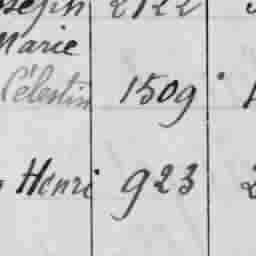 2122
Marie
Célestin 1509
Henri 923